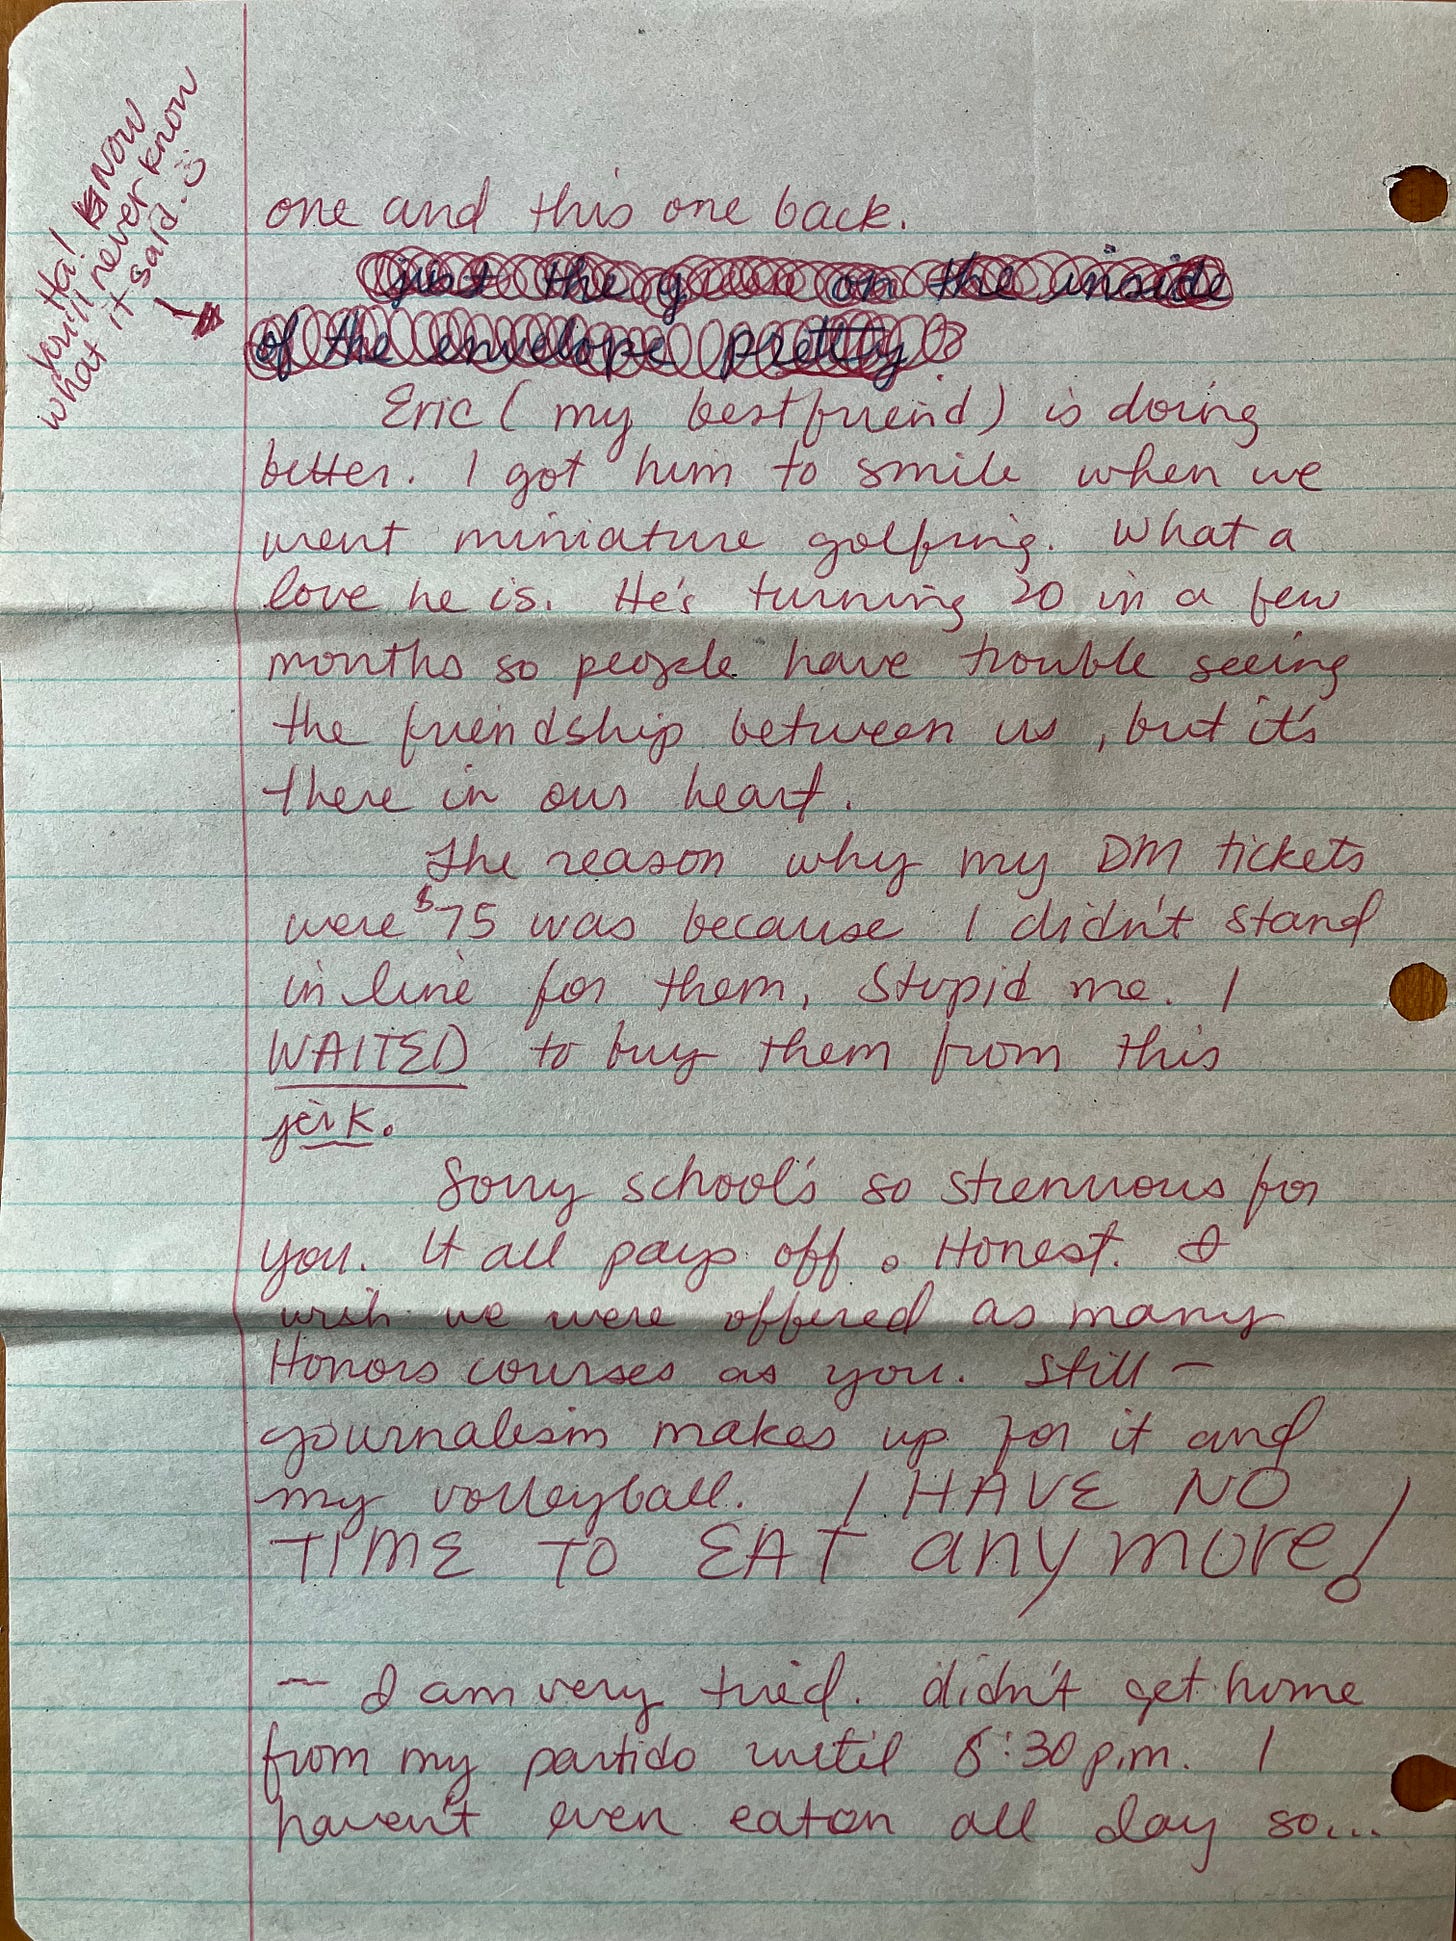 Ha! NOW
you'll never know
what it said.
one and this one back.
just the green on the inside
of the envelope pretty
Eric (my bestfriend) is doing
better. I got him to smile when we
went miniature golfing. What a
love he is. He's turning 20 in a few
months so people have trouble seeing
the friendship between us, but it's
there in our heart.
The reason why my DM tickets
were $75 was because I didn't stand
in line for them, Stupid me. I
WAITED to buy them from this
jerk.
Sorry school's so strenuous for
you. It all pays off. Honest. I
wish we were offered as many
Honors courses as you. Still —
journalism makes up for it and
my volleyball. I HAVE NO
TIME TO EAT anymore!
— I am very tired. didn't get home
from my partido until 8:30 p.m. I
haven't even eaton all day so...